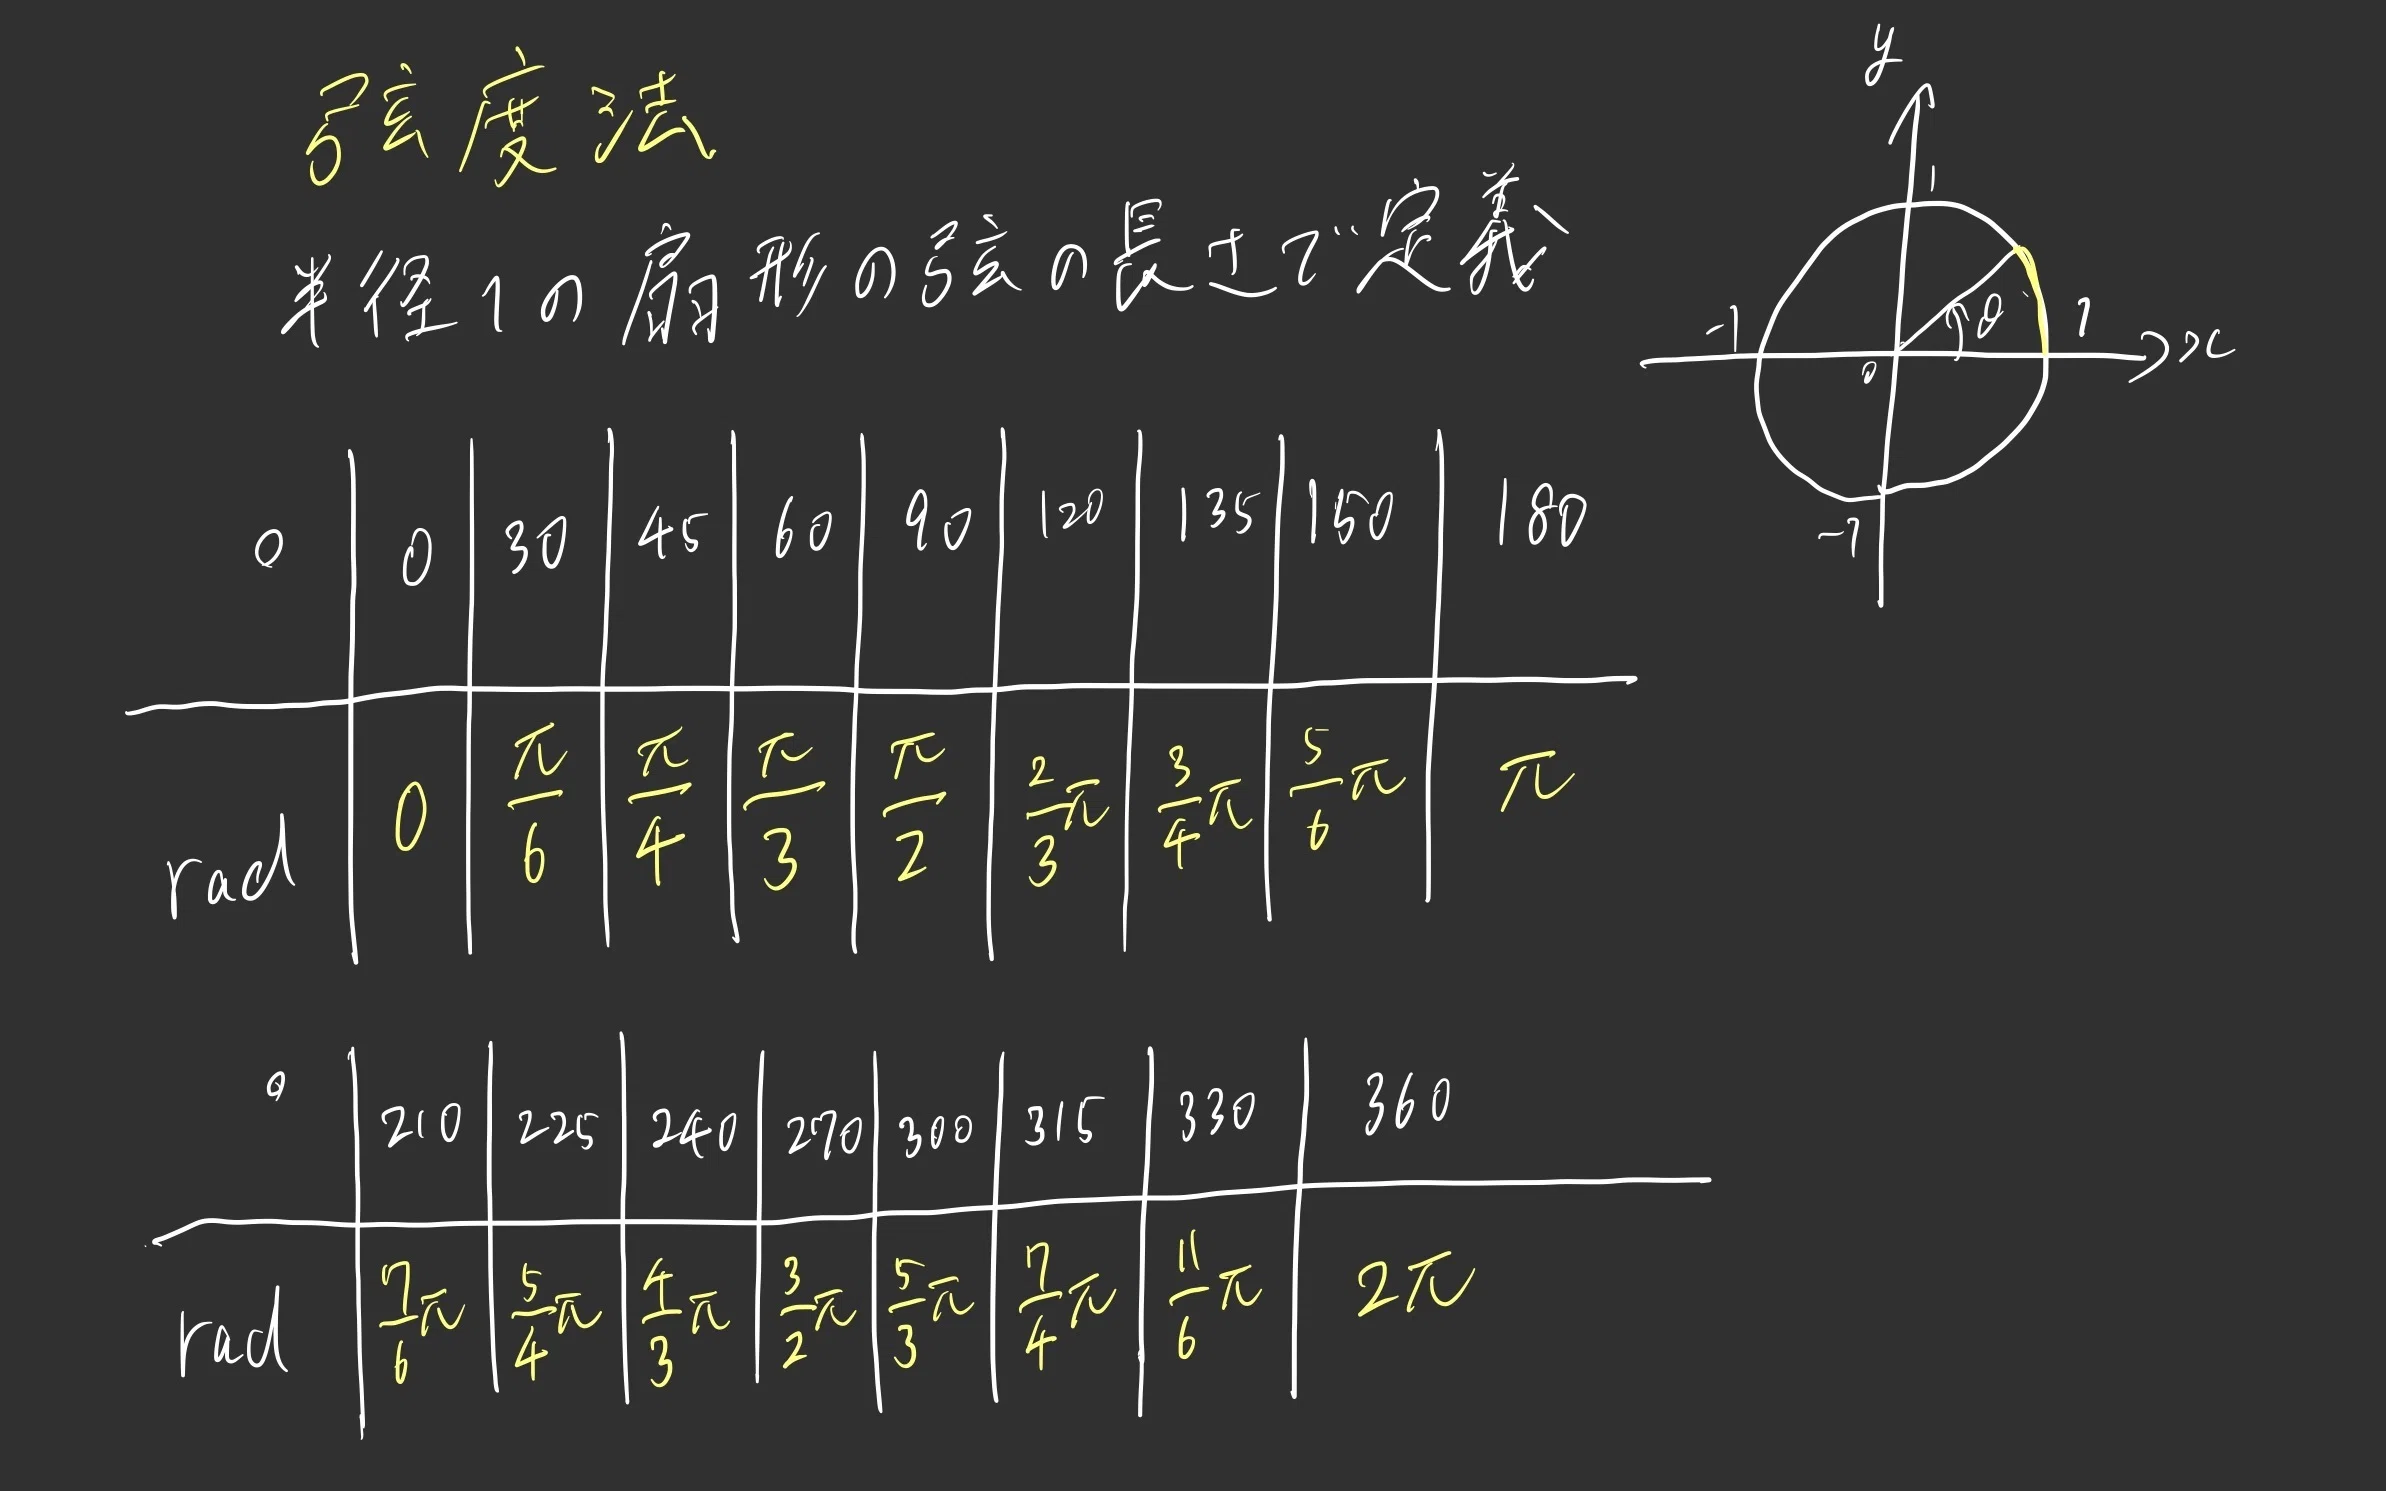 弦度法
半径1の扇形の弦の長さで定義
y
1
-1
0
θ
1
x
-1
° 0 30 45 60 90 120 135 150 180
rad 0 π/6 π/4 π/3 π/2 2/3π 3/4π 5/6π π
° 210 225 240 270 300 315 330 360
rad 7/6π 5/4π 4/3π 3/2π 5/3π 7/4π 11/6π 2π